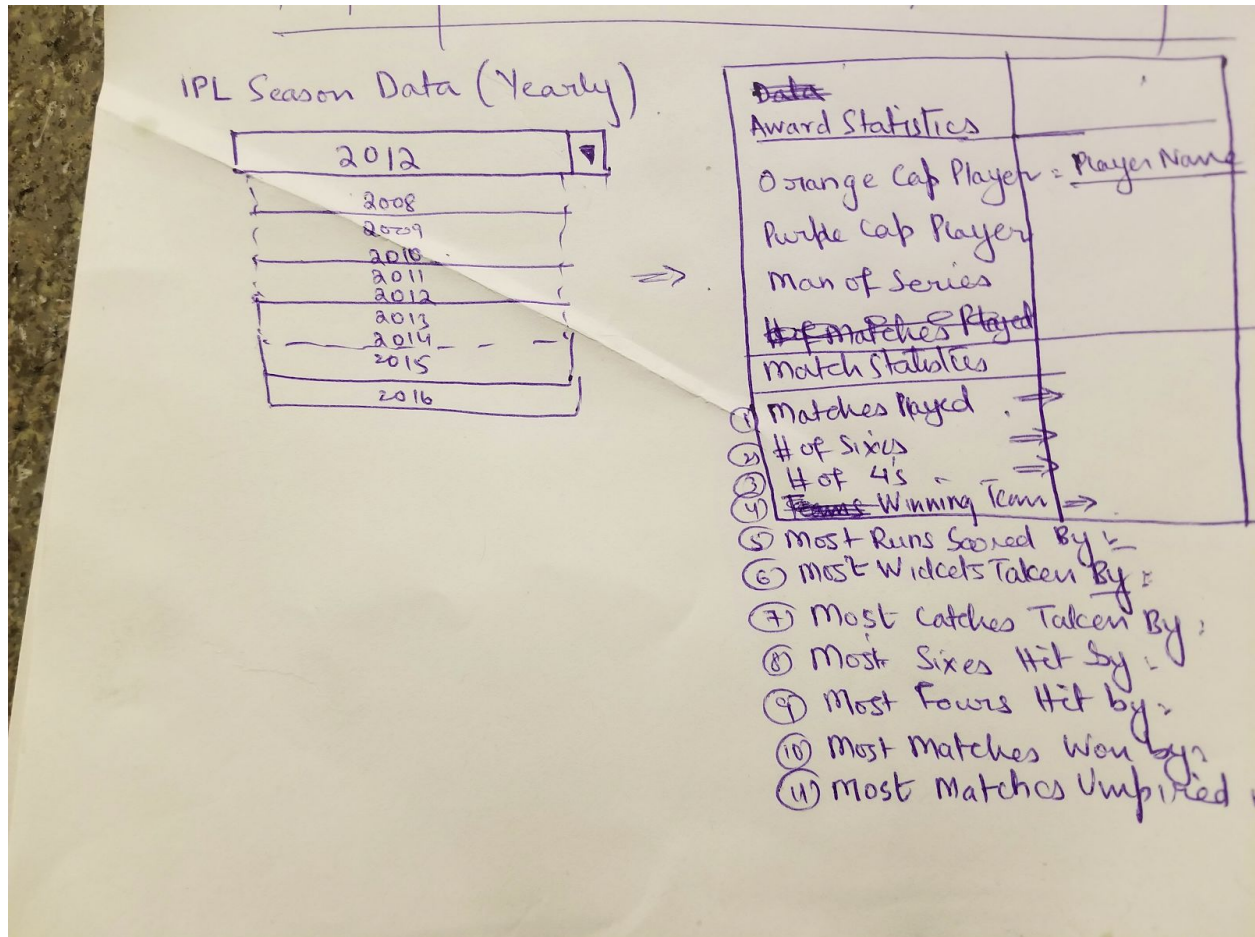 IPL Season Data (Yearly)
2012
2008
2009
2010
2011
2012
2013
2014
2015
2016
Data
Award Statistics
Orange Cap Player = Player Name
Purple Cap Player
Man of Series
# of Matches Played
Match Statistics
① Matches Played
② # of Sixes
③ # of 4's
④ Teams Winning Team
⑤ Most Runs Scored By :
⑥ Most Widcets Taken By :
⑦ Most Catches Taken By :
⑧ Most Sixes Hit by :
⑨ Most Fours Hit by :
⑩ Most Matches Won by :
⑪ Most Matches Umpired